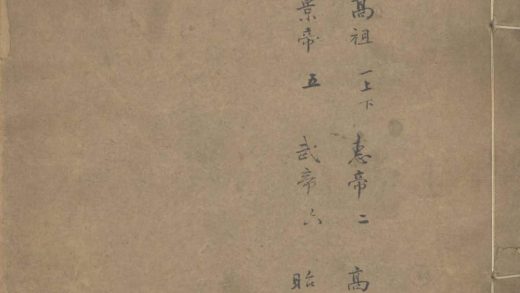 高祖 一上下 惠帝 二 高
景帝 五 武帝 六 昭